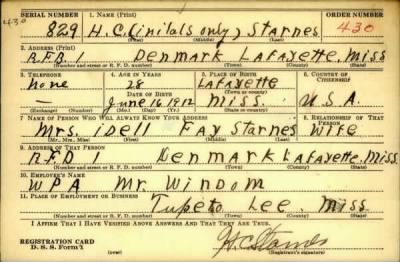 SERIAL NUMBER 1. NAME (Print) ORDER NUMBER
430
829 H.C. (initals only) Starnes 430
(First) (Middle) (Last)
2. ADDRESS (Print)
R.F.D. 1 Denmark Lafayette, Miss
(Number and street or R. F. D. number) (Town) (County) (State)
3. TELEPHONE 4. AGE IN YEARS 5. PLACE OF BIRTH 6. COUNTRY OF CITIZENSHIP
None 28 Lafayette
DATE OF BIRTH (Town or county)
— June 16 1912 Miss. U.S.A.
(Exchange) (Number) (Mo.) (Day) (Yr.) (State or country)
7. NAME OF PERSON WHO WILL ALWAYS KNOW YOUR ADDRESS 8. RELATIONSHIP OF THAT PERSON
Mrs. idell Fay Starnes Wife
(Mr., Mrs., Miss) (First) (Middle) (Last)
9. ADDRESS OF THAT PERSON
R.F.D 1 Denmark Lafayette, Miss.
(Number and street or R. F. D. number) (Town) (County) (State)
10. EMPLOYER'S NAME
WPA Mr. Windom
11. PLACE OF EMPLOYMENT OR BUSINESS
Tupelo Lee Miss
(Number and street or R. F. D. number) (Town) (County) (State)
I AFFIRM THAT I HAVE VERIFIED ABOVE ANSWERS AND THAT THEY ARE TRUE.
REGISTRATION CARD
D. S. S. Form 1 (Registrant's signature)